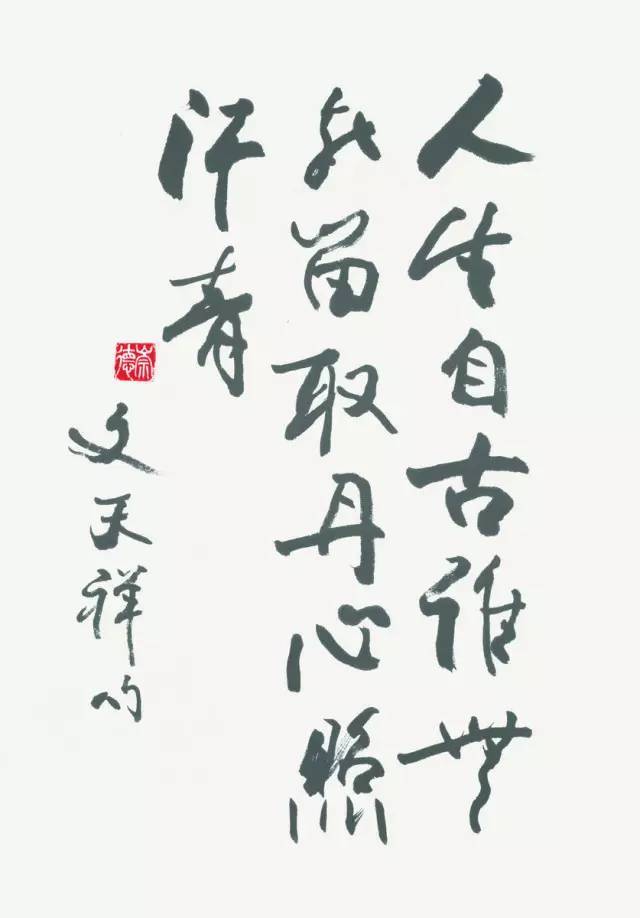 人生自古誰無
死留取丹心照
汗青
文天祥句
崇德